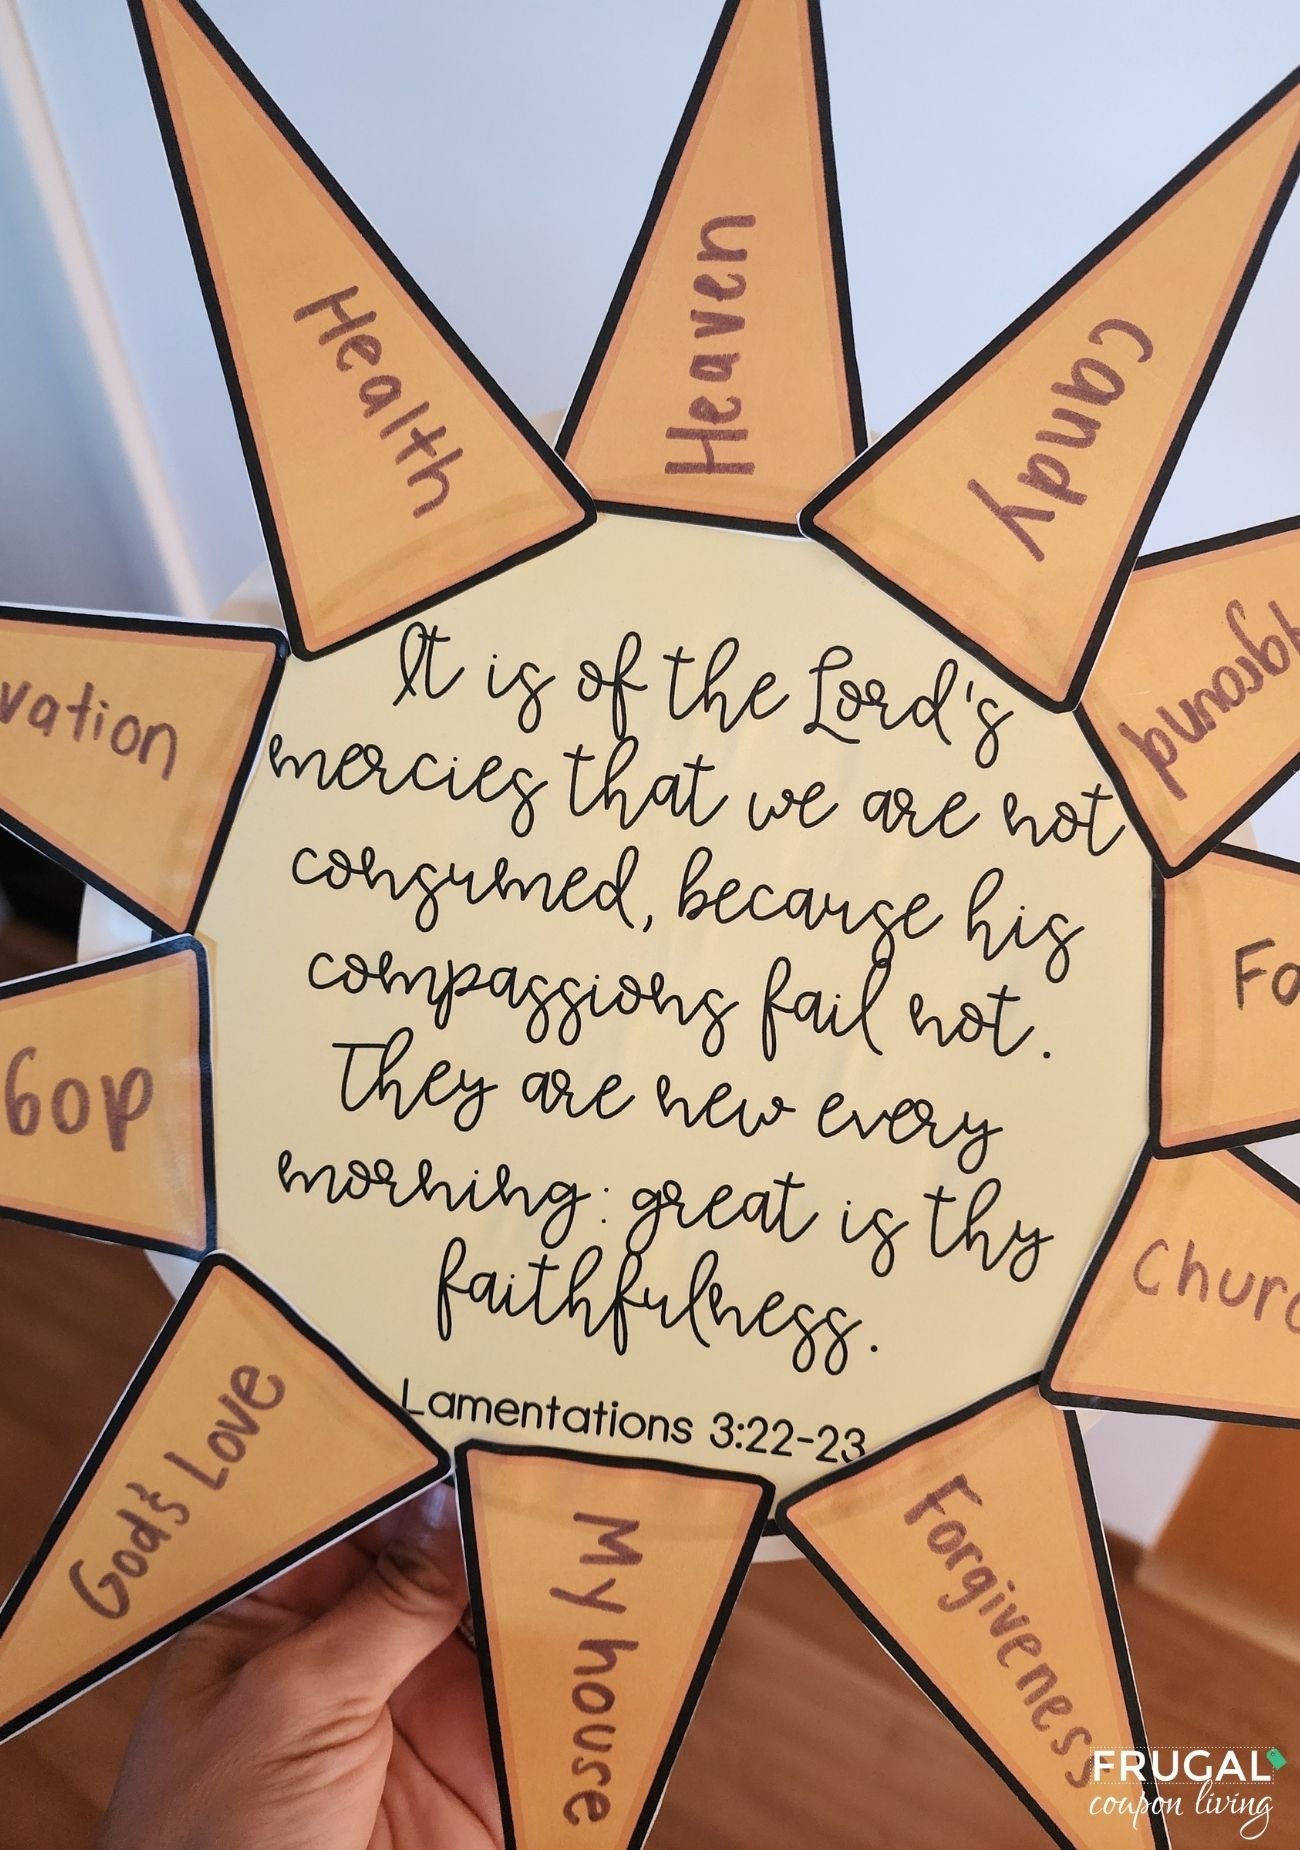 Health
Heaven
Candy
yground
vation
Fa
dog
Churc
God's Love
My house
Forgiveness
It is of the Lord's
mercies that we are not
consumed, because his
compassions fail not.
They are new every
morning: great is thy
faithfulness.
Lamentations 3:22-23
FRUGAL
coupon living